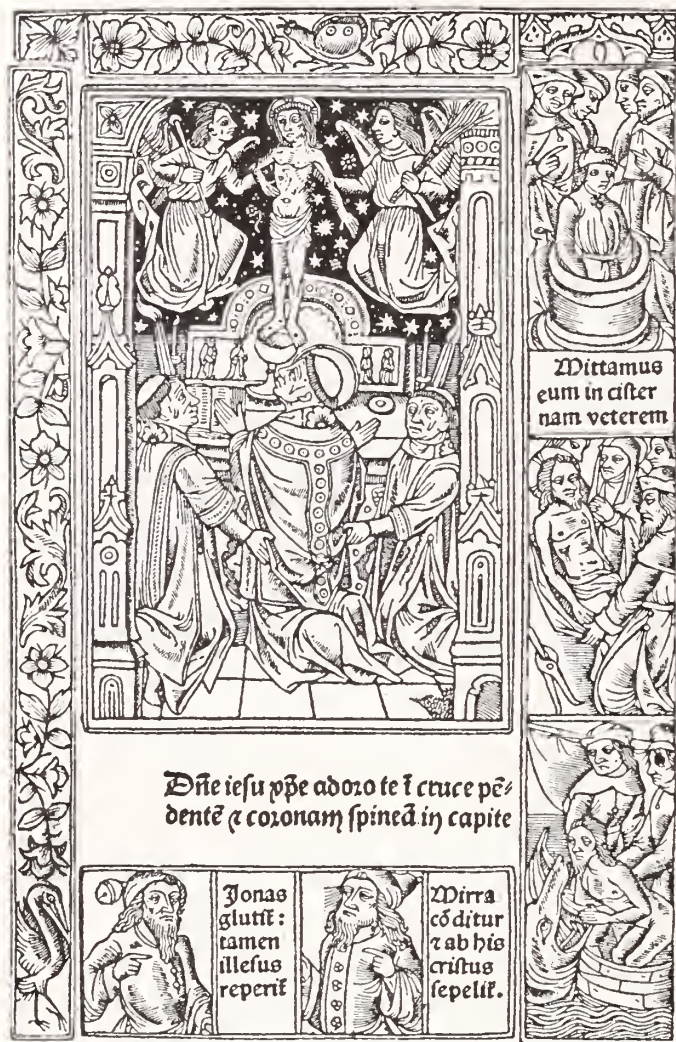 Mittamus
eum in cister
nam veterem
Dñe iesu xp̄e adoro te ī cruce pē⸗
dentē ⁊ coronam spineā in capite
Jonas
glutit᷑:
tamen
illesus
reperit᷑
Mirra
cōditur
⁊ ab his
cristus
sepelit᷑.